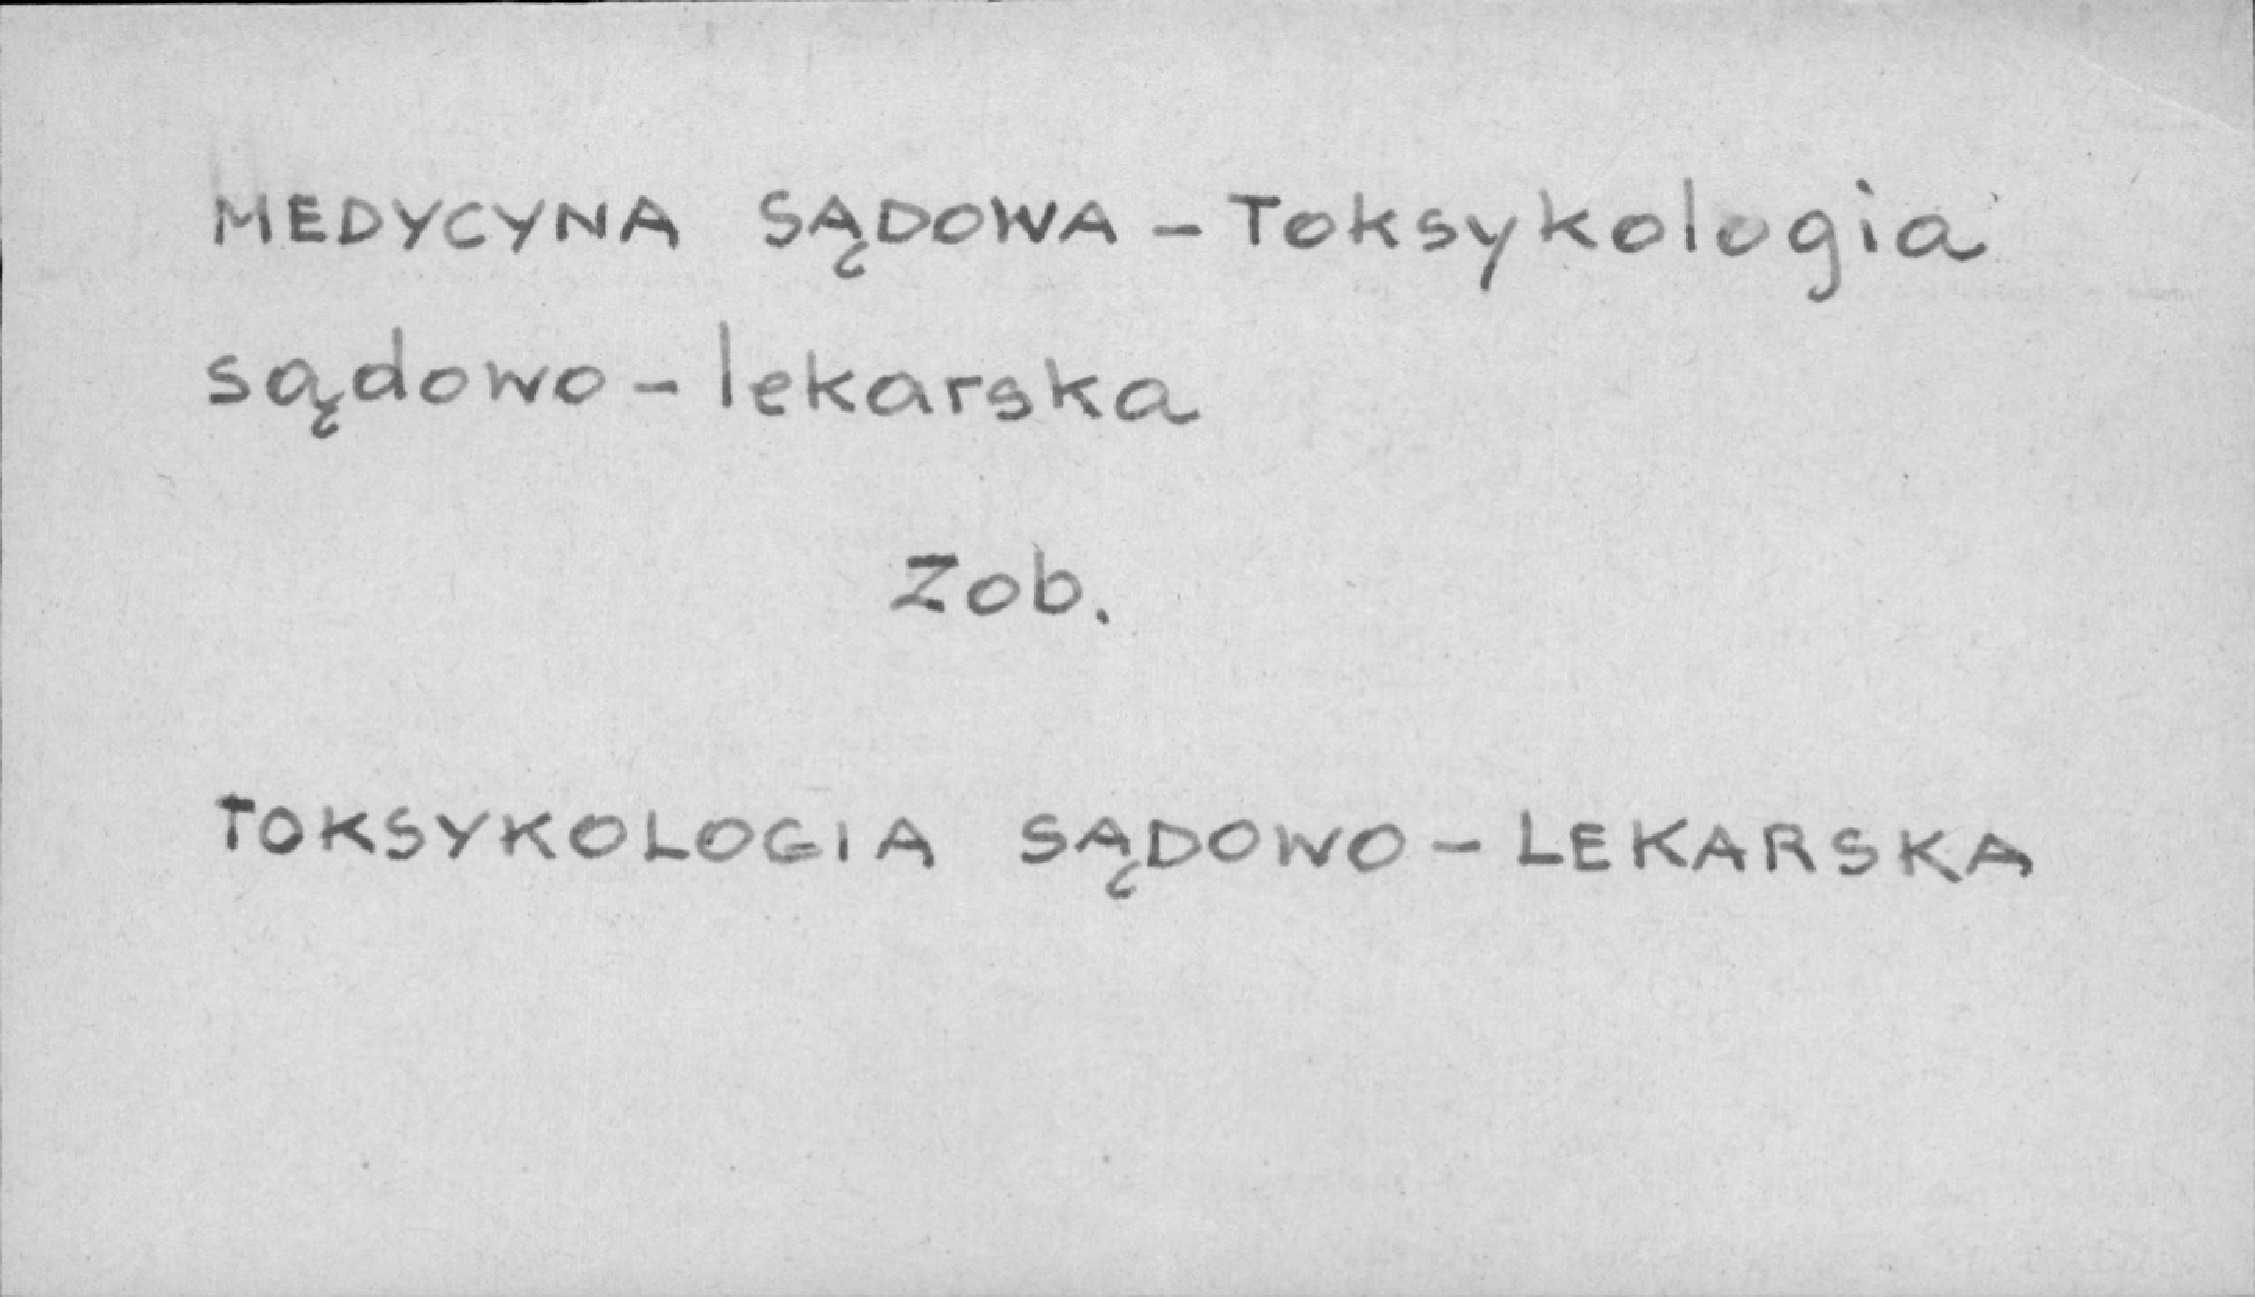 MEDYCYNA SĄDOWA - Toksykologia
sądowo - lekarska
Zob.
TOKSYKOLOGIA SĄDOWO - LEKARSKA